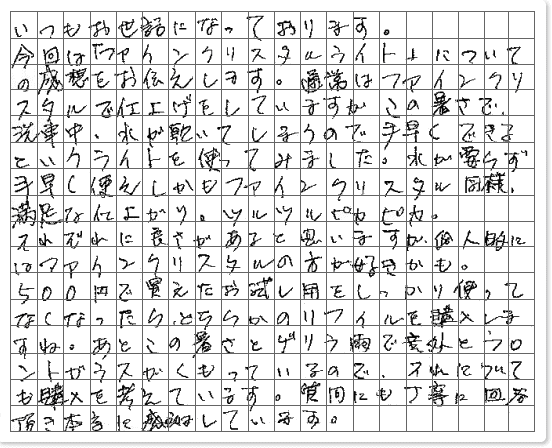 いつもお世話になっております。
今回は「ファインクリスタルライト」について
の感想をお伝えします。通常はファインクリ
スタルで仕上げをしていますがこの暑さで、
洗車中、水が乾いてしまうので手早くできる
というライトを使ってみました。水が要らず
手早く使えしかもファインクリスタル同様、
満足な仕上がり。ツルツルピカピカ。
それぞれに良さがあると思いますが、個人的に
はファインクリスタルの方が好きかも。
500円で買えたお試し用をしっかり使って
なくなったら、どちらかのリフィルを購入しま
すね。あとこの暑さとゲリラ雨で意外とフロ
ントガラスがくもっているので、それについて
も購入を考えています。質問にも丁寧に回答
頂き本当に感謝しています。